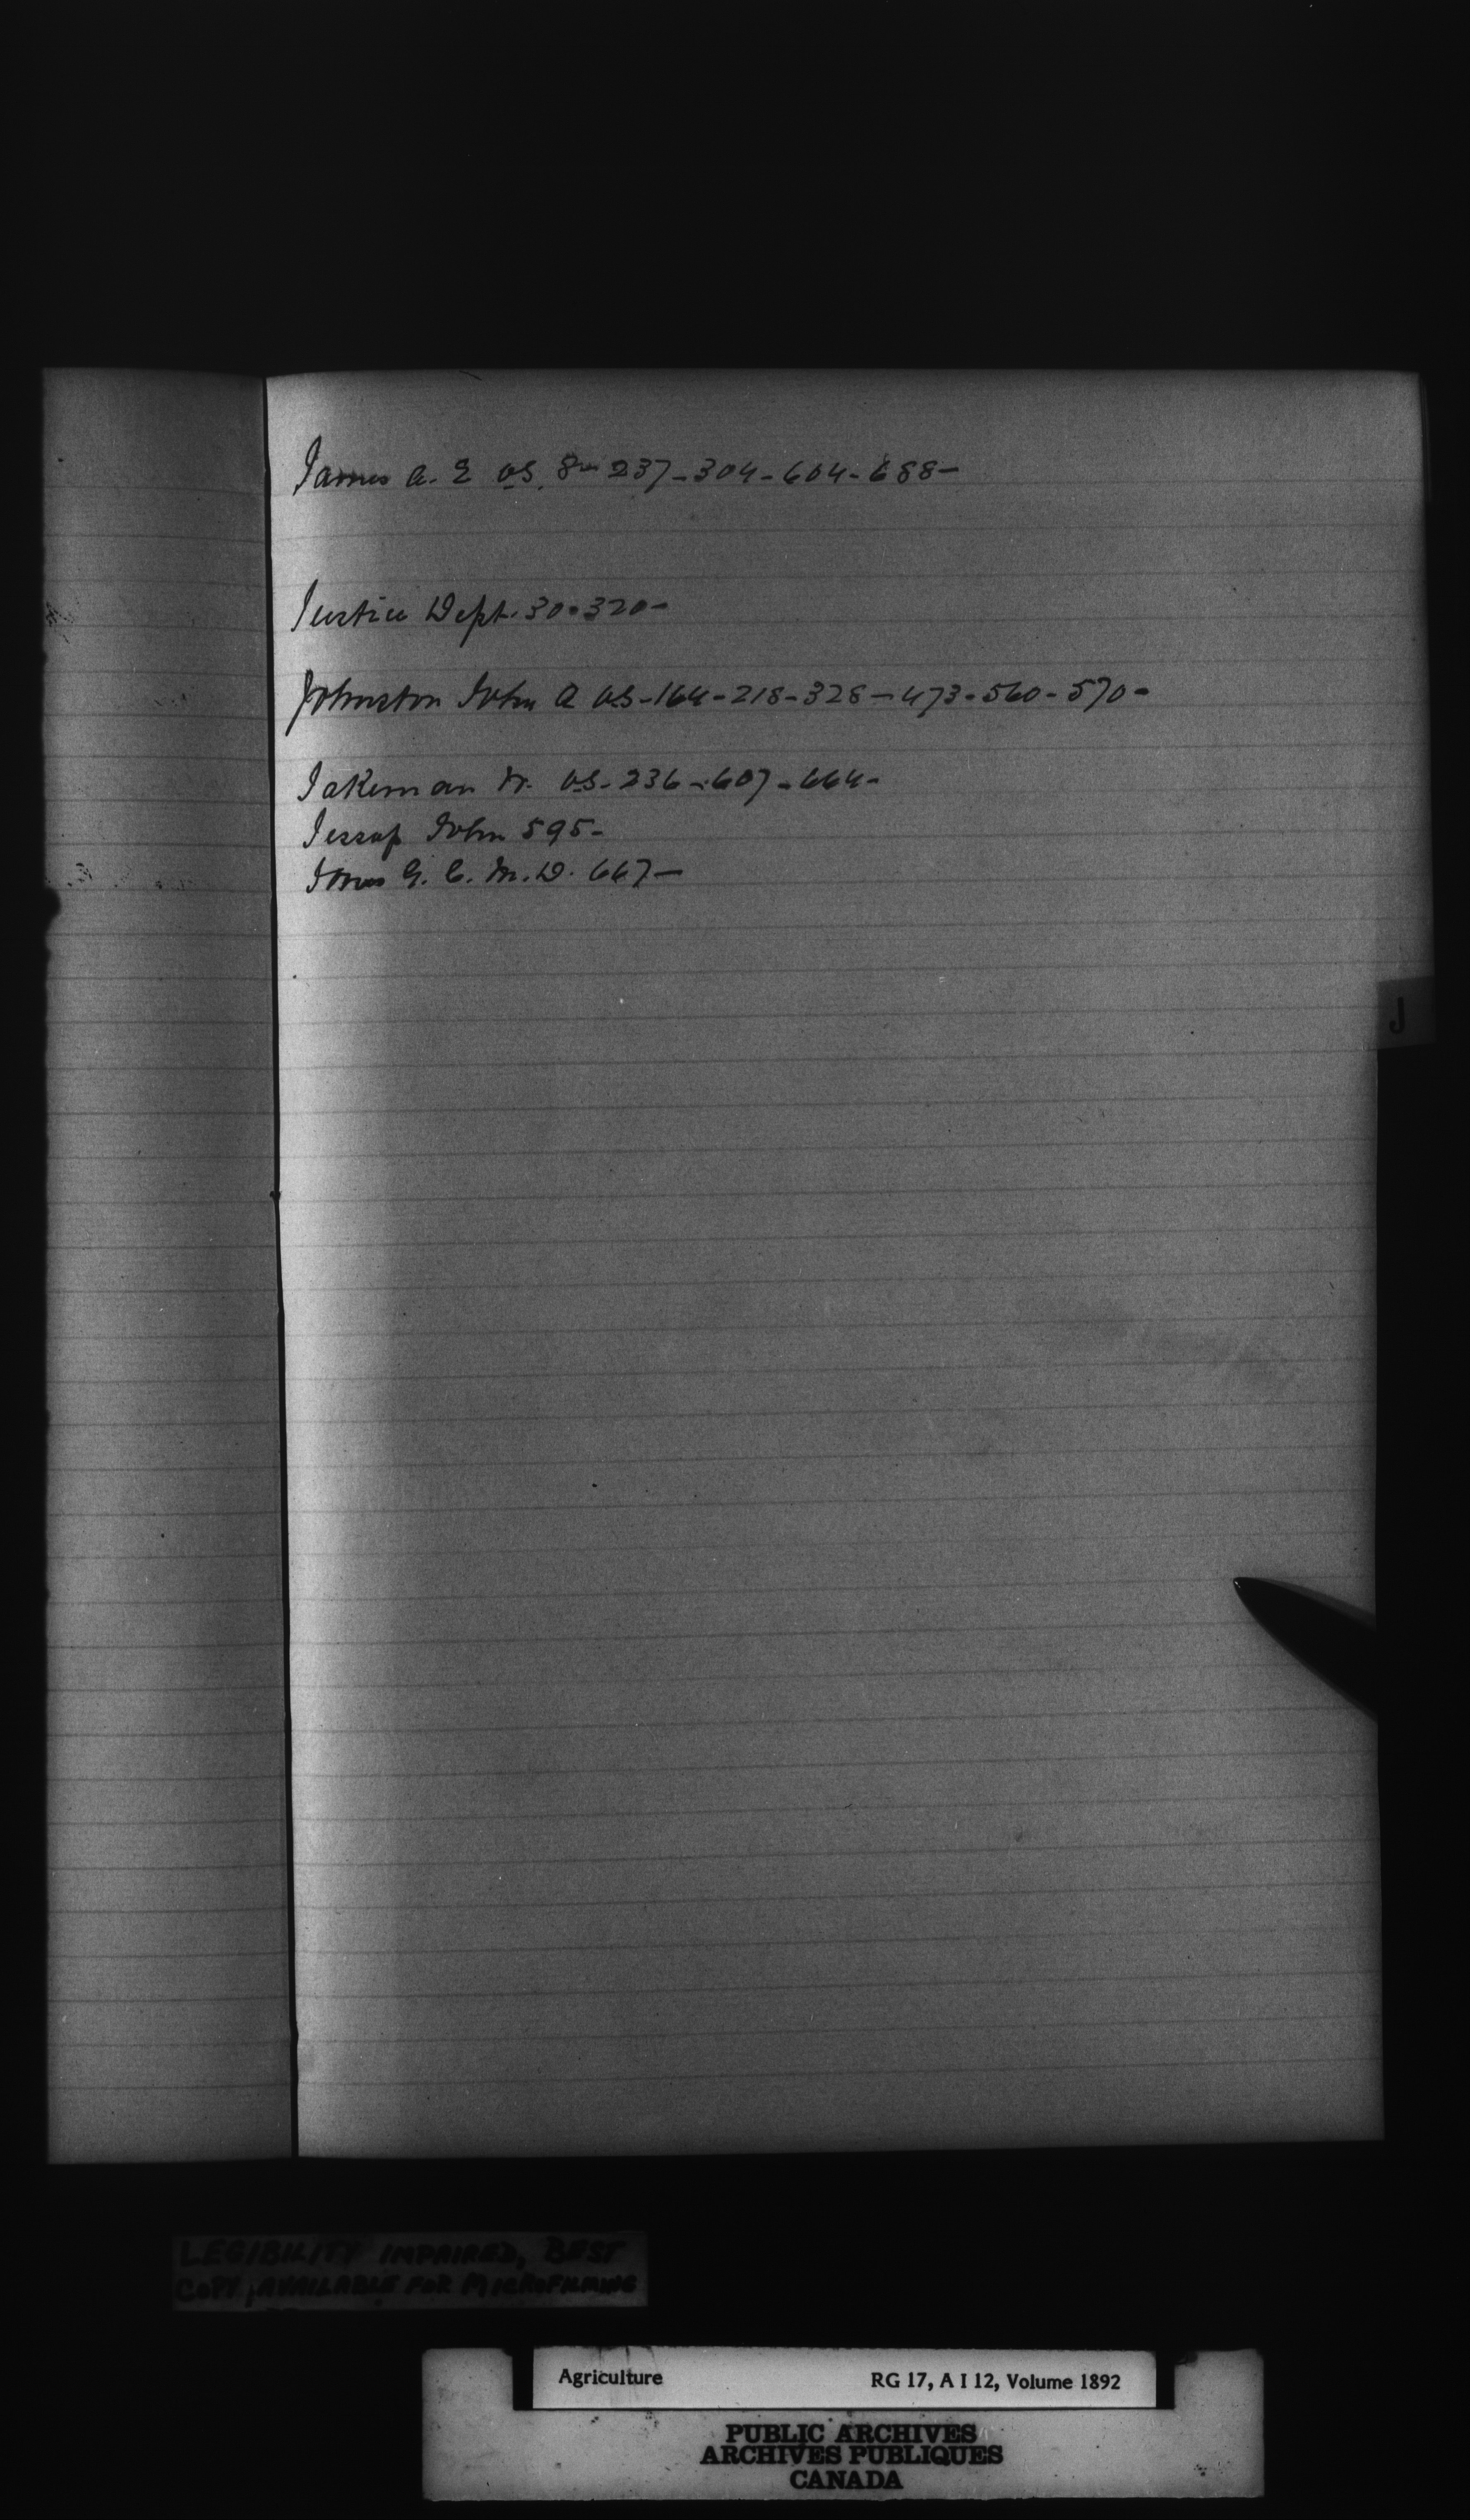 James A. E VS. 237-304-604-688-
Justice Dept. 30-320-
Johnston John A VS-164-218-328-473-560-570-
Jakeman W. VS-236-607-664-
Jessop John 595-
Jones G. C. M.D. 667-
J
LEGIBILITY IMPAIRED, BEST
COPY AVAILABLE FOR MICROFILMING
Agriculture RG 17, A I 12, Volume 1892
PUBLIC ARCHIVES
ARCHIVES PUBLIQUES
CANADA